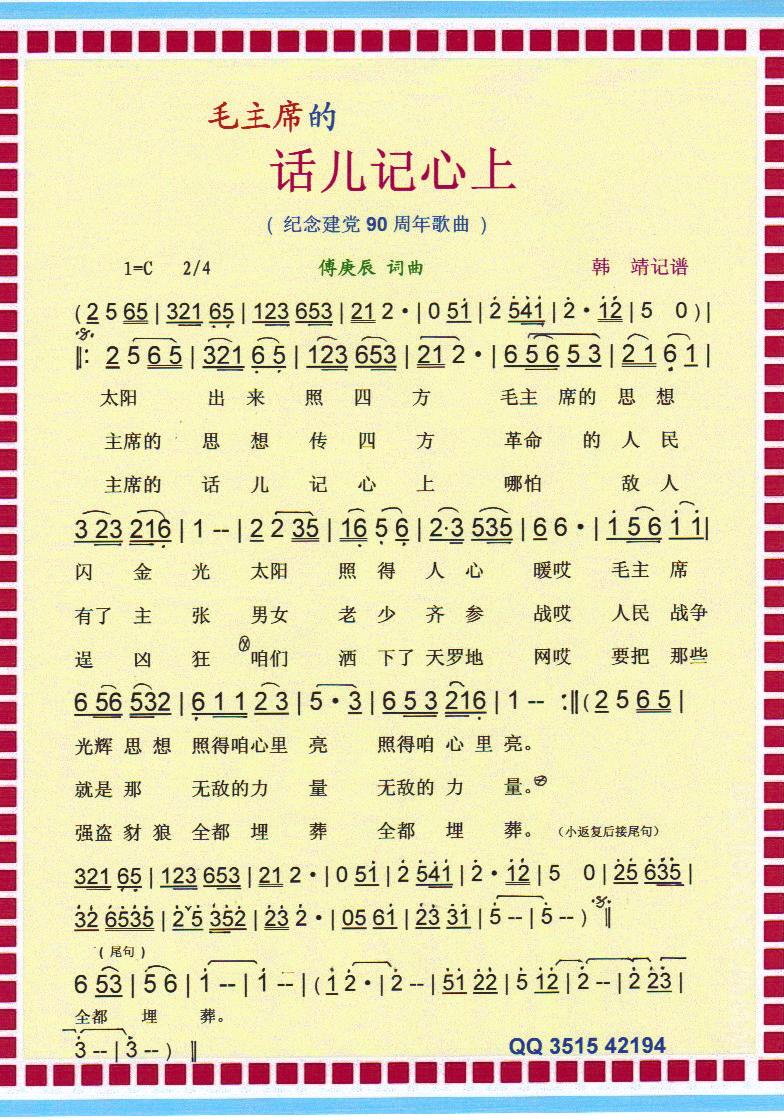 毛主席的
话儿记心上
( 纪念建党 90 周年歌曲 )
1=C 2/4 傅庚辰 词曲 韩 靖记谱
( 2 5 65 | 321 65 | 123 653 | 21 2 · | 0 51 | 2 541 | 2 · 12 | 5 0 ) |
‖: 2 5 6 5 | 321 6 5 | 123 653 | 21 2 · | 6 5 6 5 3 | 2 1 6 1 |
太阳 出 来 照 四 方 毛主 席的 思 想
主席的 思 想 传 四 方 革命 的 人 民
主席的 话 儿 记 心 上 哪怕 敌 人
3 23 216 | 1 -- | 2 2 35 | 16 5 6 | 2·3 535 | 6 6 · | 1 5 6 1 1 |
闪 金 光 太阳 照 得 人 心 暖哎 毛主 席
有了 主 张 男女 老 少 齐 参 战哎 人民 战争
逞 凶 狂 咱们 洒 下了 天罗地 网哎 要把 那些
6 56 532 | 6 1 1 2 3 | 5 · 3 | 6 5 3 216 | 1 -- :‖ ( 2 5 6 5 |
光辉 思 想 照得咱心里 亮 照得咱 心 里 亮。
就是 那 无敌的力 量 无敌的 力 量。
强盗 豺 狼 全都 埋 葬 全都 埋 葬。 (小返复后接尾句)
321 65 | 123 653 | 21 2 · | 0 51 | 2 541 | 2 · 12 | 5 0 | 25 635 |
32 6535 | 2 5 352 | 23 2 · | 05 61 | 23 31 | 5 -- | 5 -- ) ‖
( 尾句 )
6 53 | 5 6 | 1 -- | 1 -- | ( 1 2 · | 2 -- | 51 22 | 5 12 | 2 -- | 2 23 |
全都 埋 葬。
3 -- | 3 -- ) ‖
QQ 3515 42194